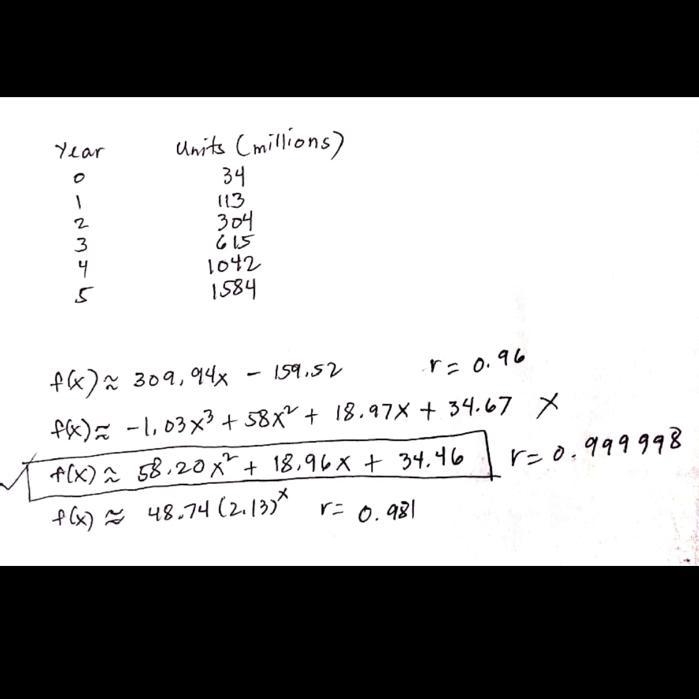 Year Units (millions)
0 34
1 113
2 304
3 615
4 1042
5 1584
f(x) ≈ 309.94x - 159.52 r = 0.96
f(x) ≈ -1.03x³ + 58x² + 18.97x + 34.67 X
✓ f(x) ≈ 58.20x² + 18.96x + 34.46 r = 0.999998
f(x) ≈ 48.74(2.13)ˣ r = 0.981